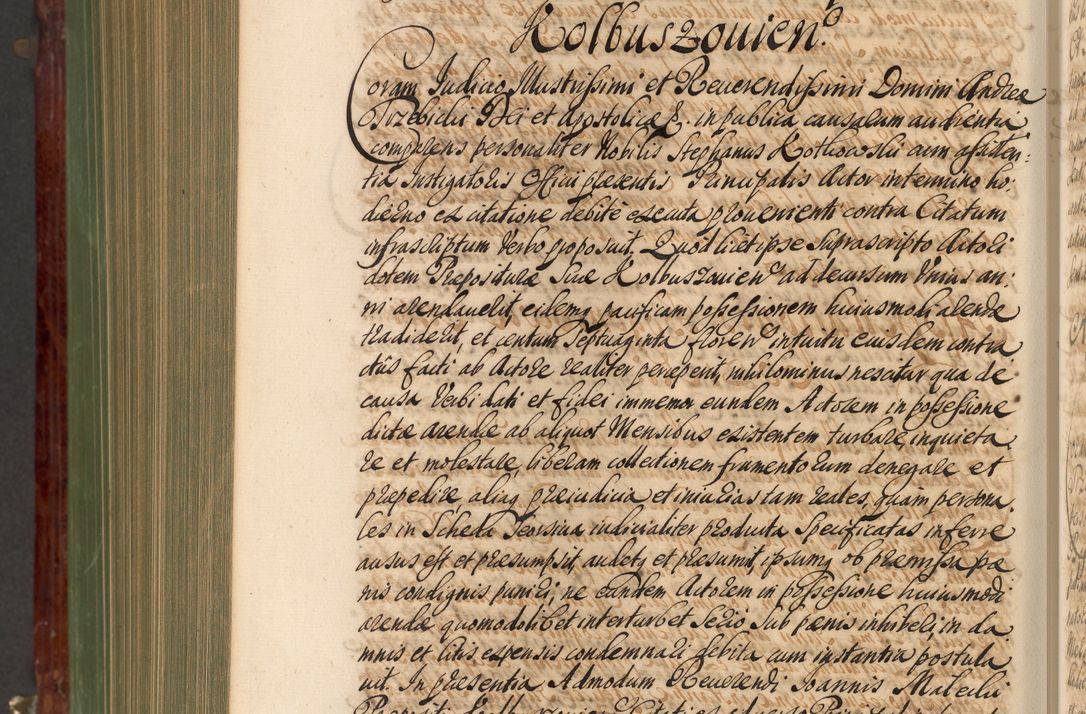 Kolbuszouien.
Coram Judicio Illustrissimi et Reuerendissimi Domini Andrea
Trzebicki Dei et Apostolicæ &. in publica causarum audientia
comparens personaliter Nobilis Stephanus Kotkowski cum assisten:
tia Instigatoris Officii præsentis Principalis Actor in termino ho:
dierno ex citatione debite executa prouenienti contra Citatum
infrascriptum Verbo proposuit, Quod licet ipse suprascripto Actori
dotem Præposituræ suæ Kolbuszouien ad decursum Vnius an:
ni arendauerit, eidemq pacificam possessionem huiusmodi arendæ
tradiderit, et centum Septuaginta floren intuitu eiusdem contra
ctus facti ab Actore realiter perceperit, nihilominus nescitur qua de
causa Verbi dati et fidei immemor eundem Actorem in possessione
dictæ arendæ ab aliquot Mensibus existentem turbare, inquieta
re et molestare, liberam collectionem frumentorum denegare et
præpedire, aliaq præiudicia et iniurias tam reales, quam persona
les in Scheda Seorsiua iudicialiter producta Specificatas inferre
ausus est et præsumpsit, audetq et præsumit, ipsumq ob præmissa pæ
nis condignis puniri, ne eundem Actorem in possessione huiusmodi
arendæ quomodolibet interturbet serio sub pænis inhiberi, in da
mnis et litis expensis condemnari debita cum instantia postula
uit. In præsentia Admodum Reuerendi Ioannis Malecki